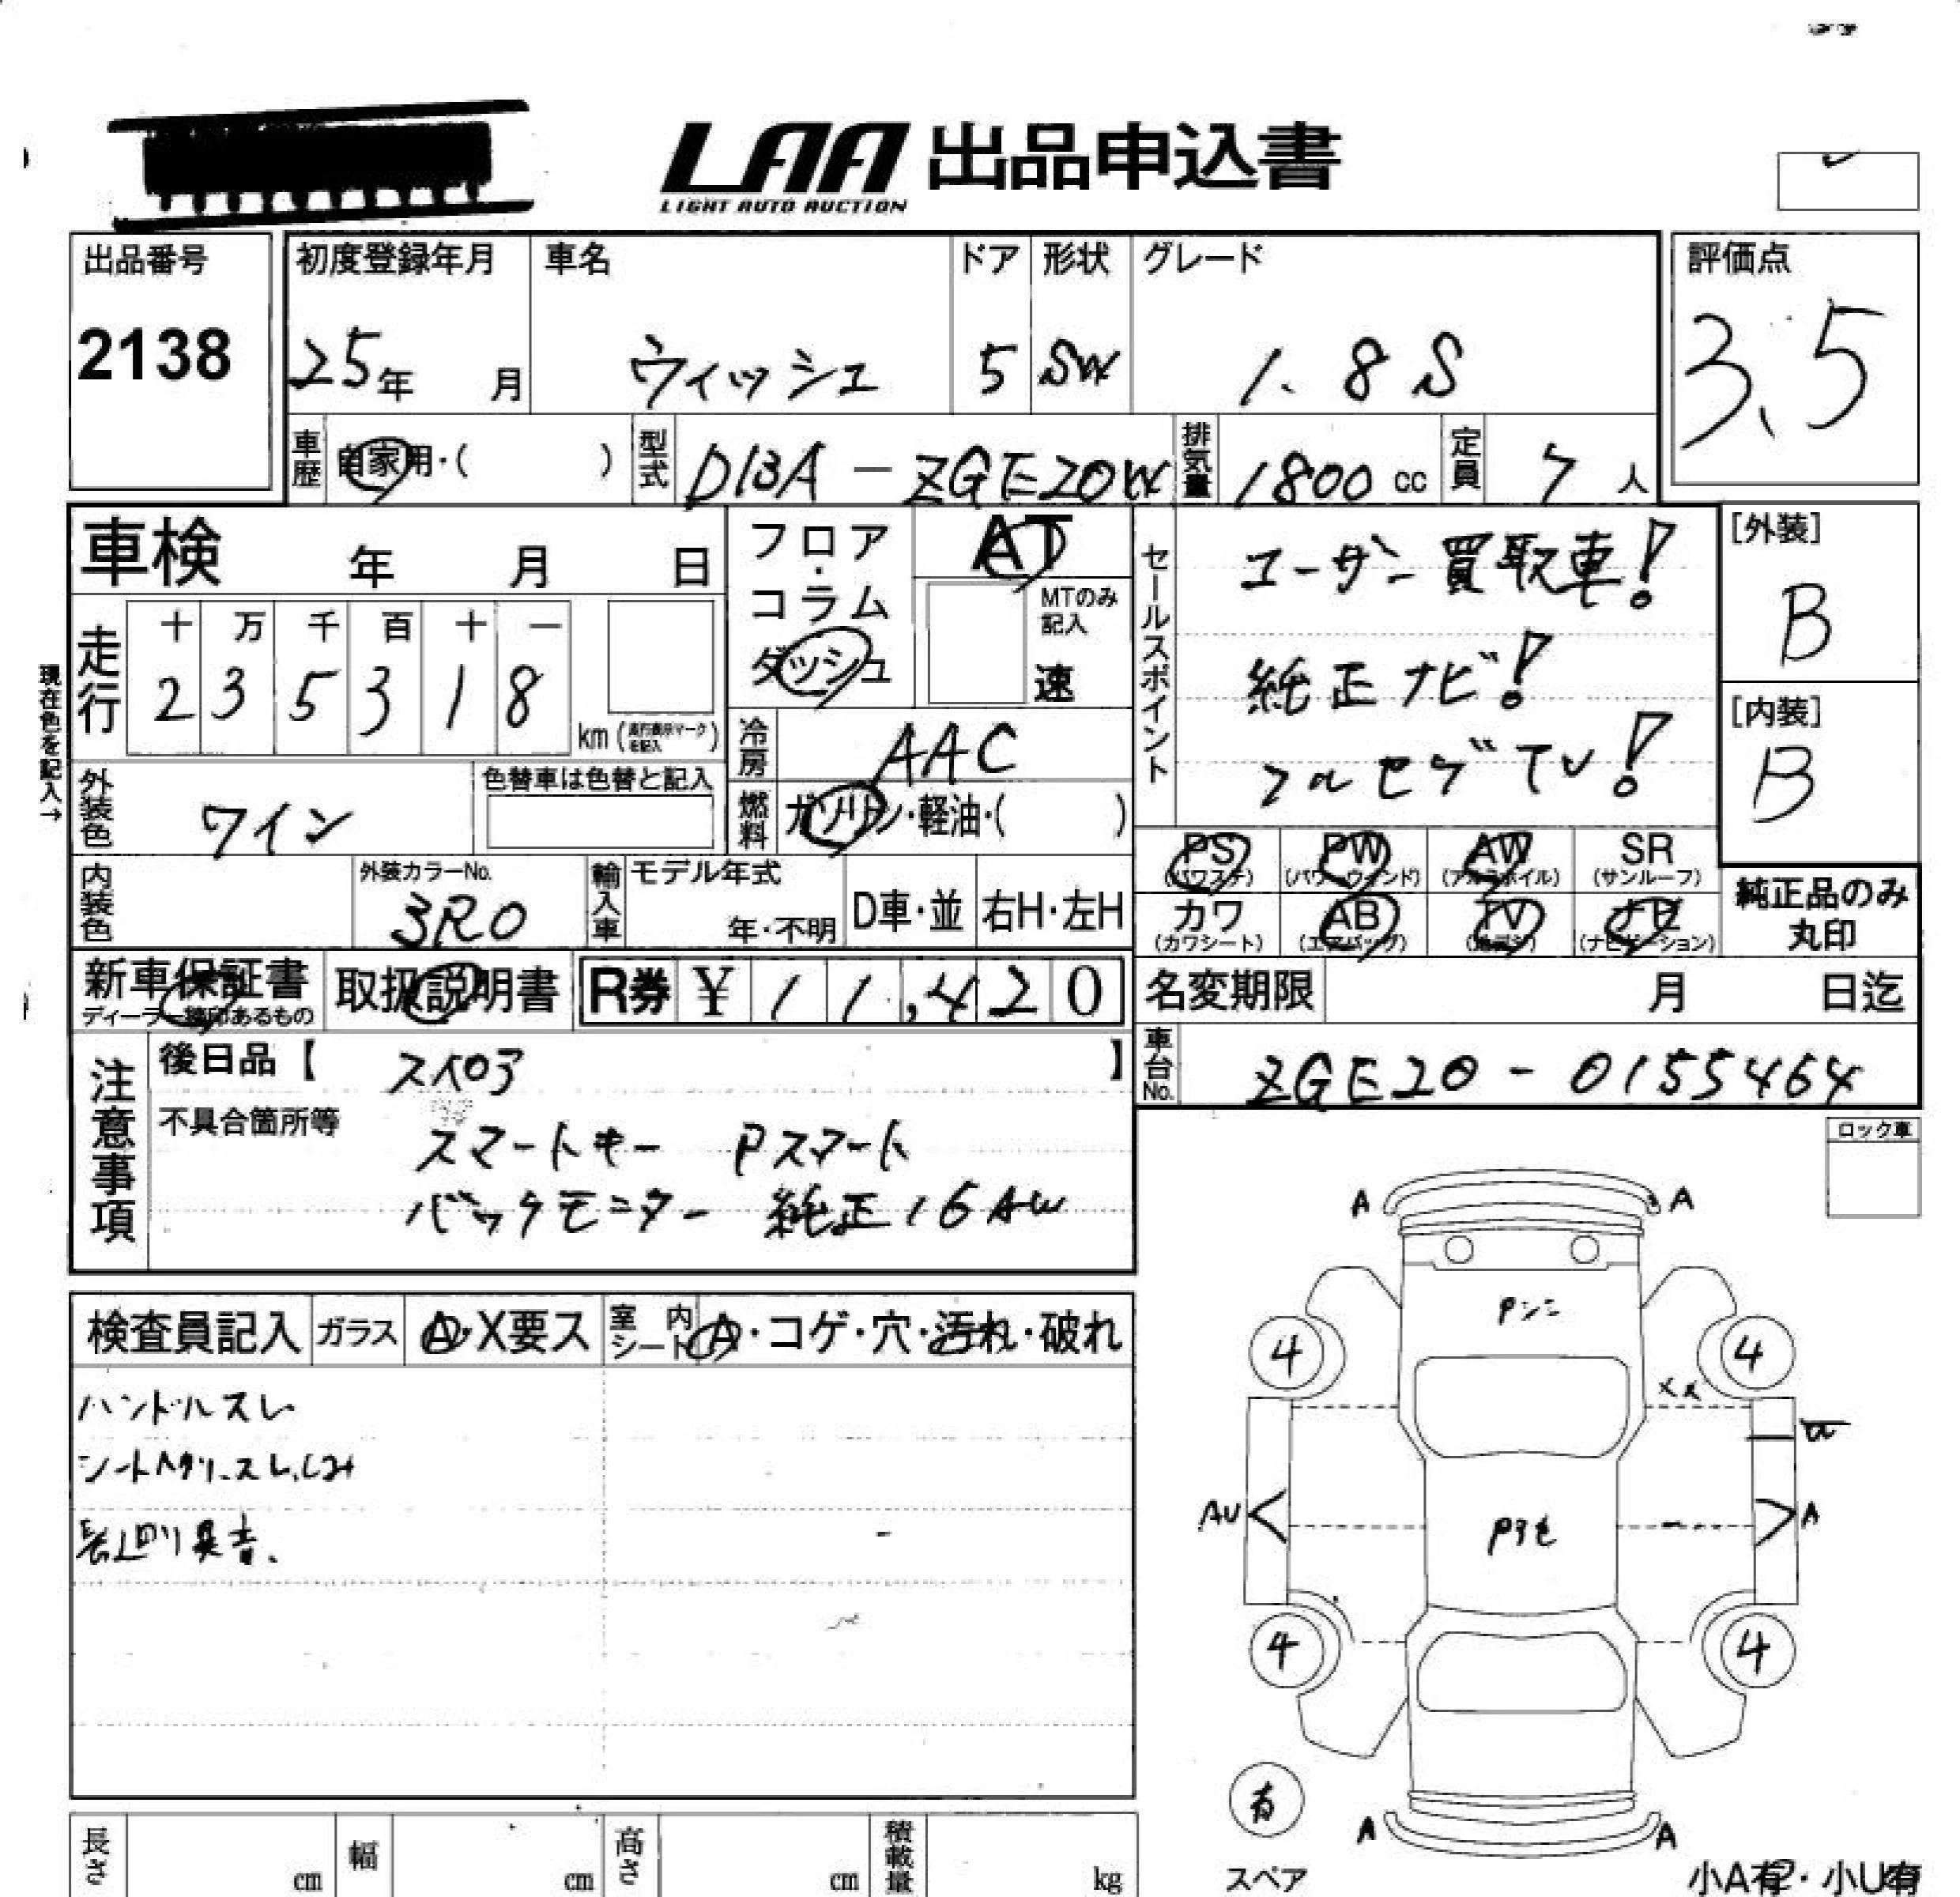 LAA 出品申込書
LIGHT AUTO AUCTION
出品番号
2138
初度登録年月
25年 月
車名
ウィッシュ
ドア
5
形状
SW
グレード
1.8S
評価点
3.5
車歴
自家用・( )
型式
DBA-ZGE20W
排気量
1800 cc
定員
7人
車検 年 月 日
フロア・コラム
ダッシュ
AT
MTのみ記入
速
セールスポイント
ユーザー買取車!
純正ナビ!
フルセグTV!
[外装]
B
[内装]
B
現在色を記入→
走行
十 万 千 百 十 一
2 3 5 3 1 8
km
冷房
AAC
燃料
ガソリン・軽油・( )
外装色
ワイン
色替車は色替と記入
内装色
外装カラーNo.
3R0
輸入車
モデル年式
年・不明
D車・並
右H・左H
PS PW AW SR
(パワステ) (パワーウィンド) (アルミホイル) (サンルーフ)
カワ AB TV ナビ
(カワシート) (エアバッグ) (テレビ) (ナビゲーション)
純正品のみ
丸印
新車保証書
取扱説明書
R券 ¥ 11,420
名変期限 月 日迄
車台No.
ZGE20-0155464
注意事項
後日品【 】
不具合箇所等
スマートキー Pスマート
バックモニター 純正16AW
ロック車
検査員記入
ガラス
A・X要ス
室内
シート
A・コゲ・穴・汚れ・破れ
ハンドルスレ
異音.
A A
4 4
XX
AU A
4 4
有
スペア
A A
小A有・小U有
長さ cm
幅 cm
高さ cm
積載量 kg